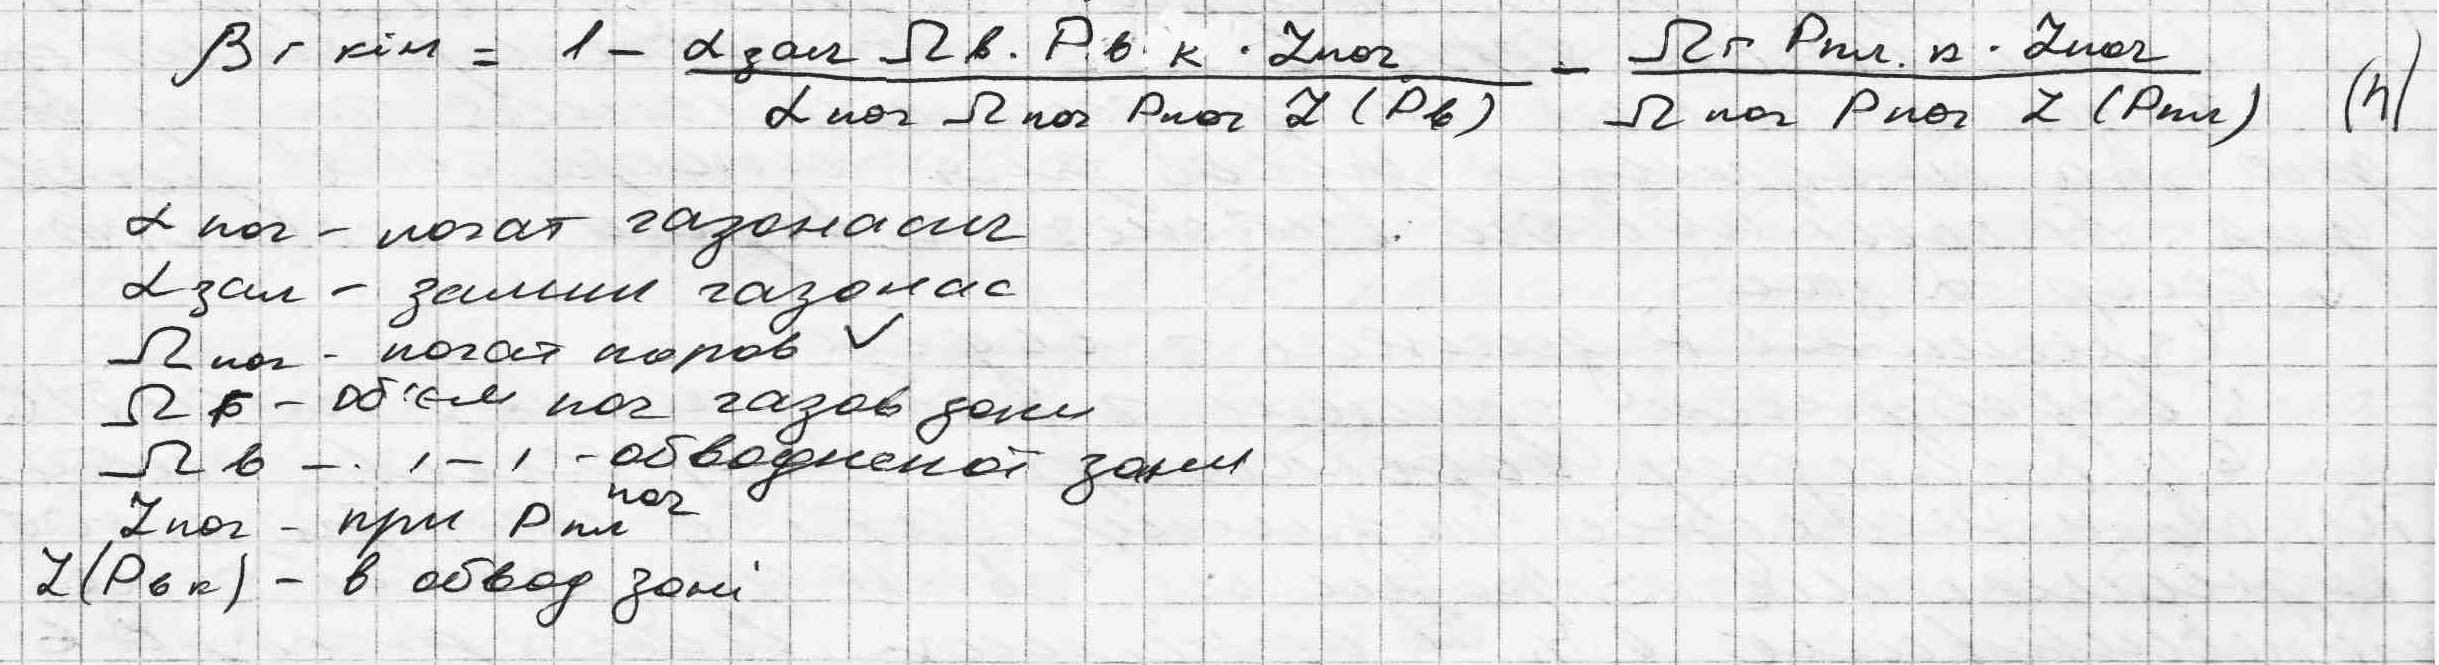 βг кін = 1 - (αзал Ωв. Рв. к · Zпоч)/(αпоч Ωпоч Рпоч Z(Рв)) - (Ωг Рпл. к · Zпоч)/(Ωпоч Рпоч Z(Рпл)) (4)
αпоч - почат газонасич
αзал - залиш газонас
Ωпоч - почат поров V
Ωг - об'єм поч газов зони
Ωв - . ı - ı - обводненої зони
Zпоч - при Рпл поч
Z(Рв к) - в обвод зоні